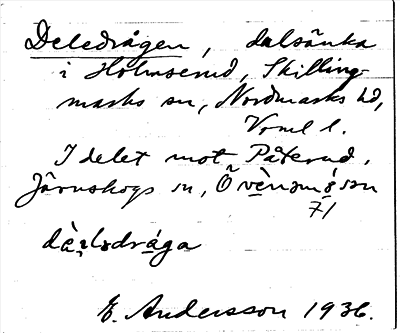 Deledrågen, dalsänka
i Holmserud, Skilling-
marks sn, Nordmarks hd,
Vrml l.
I delet mot Påterud,
Järnskogs sn,
71
E. Andersson 1936.